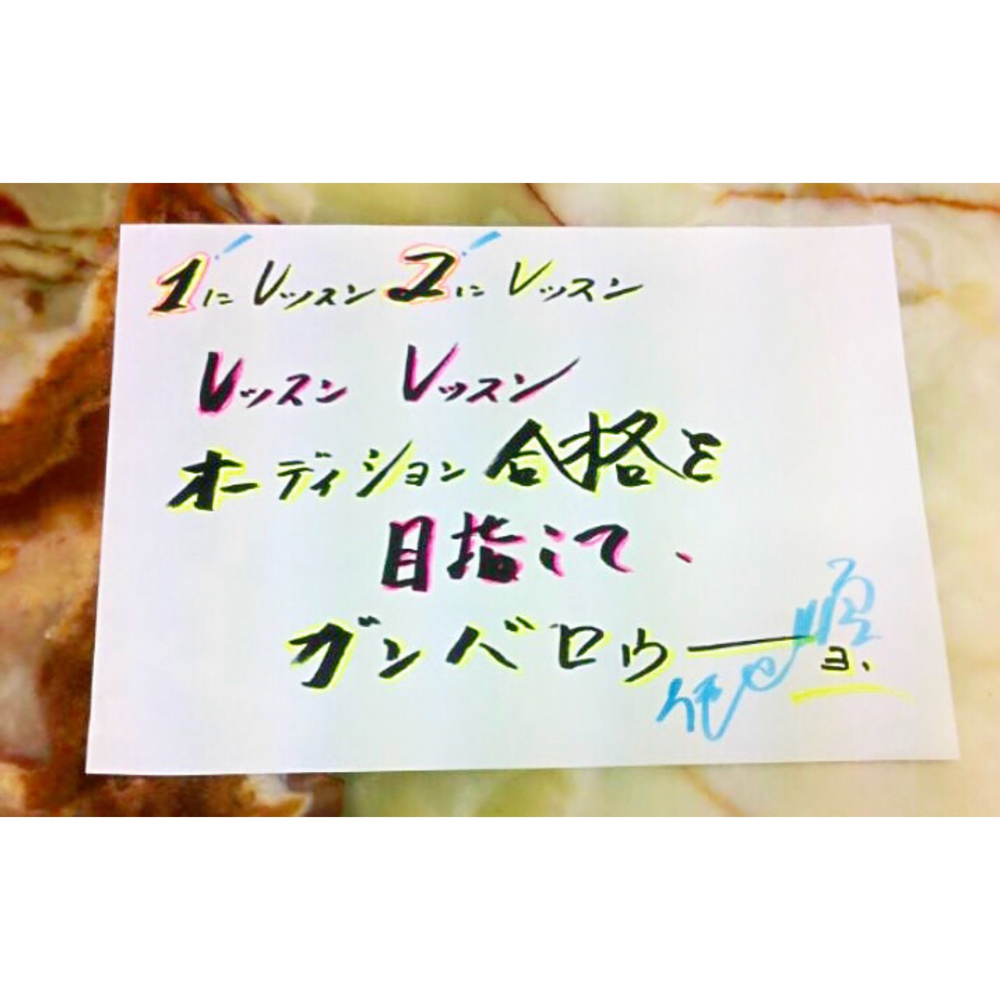 1にレッスン2にレッスン
レッスン レッスン
オーディション合格を
目指して、
ガンバロウーヨ、